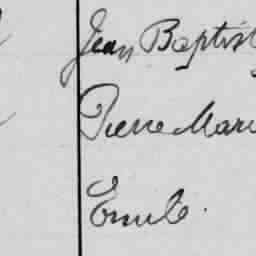 Jean Baptist
Pierre Mari
Emile.